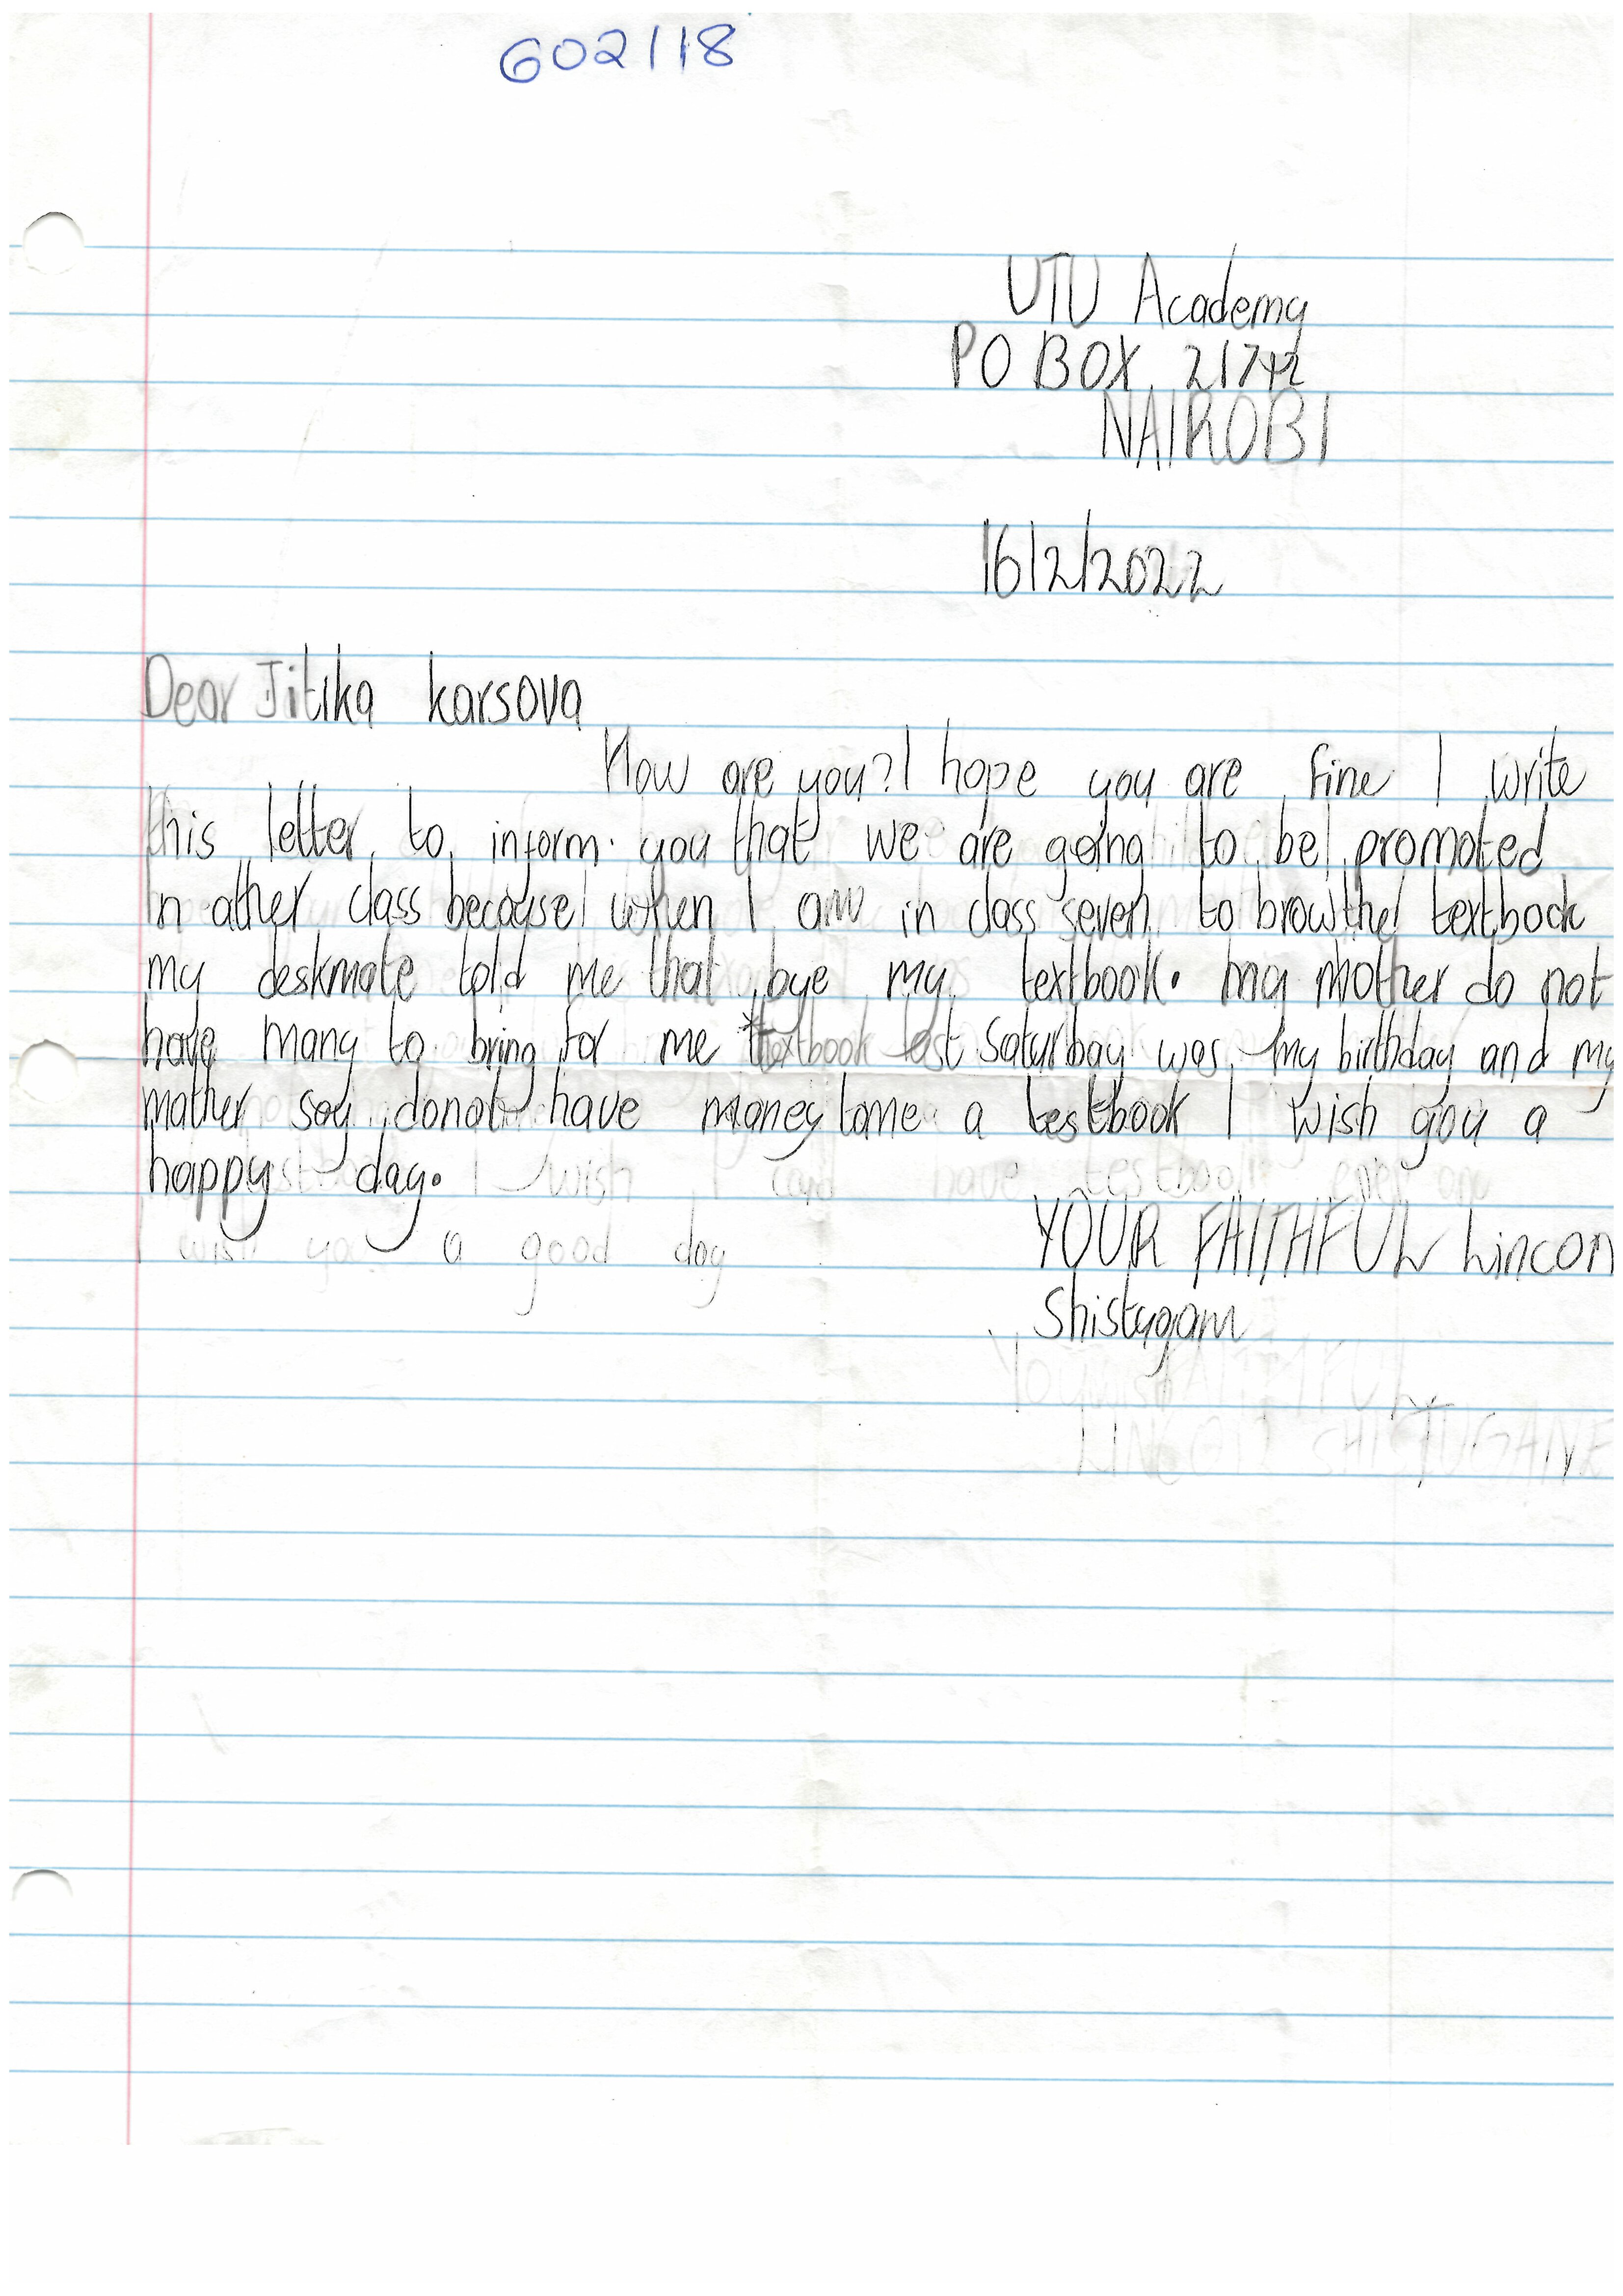 602118
UTU Academy
PO BOX 21742
NAIROBI
16/2/2022
Dear Jitika karsova
How are you? I hope you are fine I write
this letter to inform you that we are going to be promoted
in ather class because when I am in class seven to browther textbook
my deskmate told me that bye my textbook. my mother do not
have many to bring for me textbook last Saturbay was my birthday and my
mather say donot have money tame a testbook I wish you a
happy day.
I wish you a good day
YOUR FAITHFUL Lincon
Shistugam